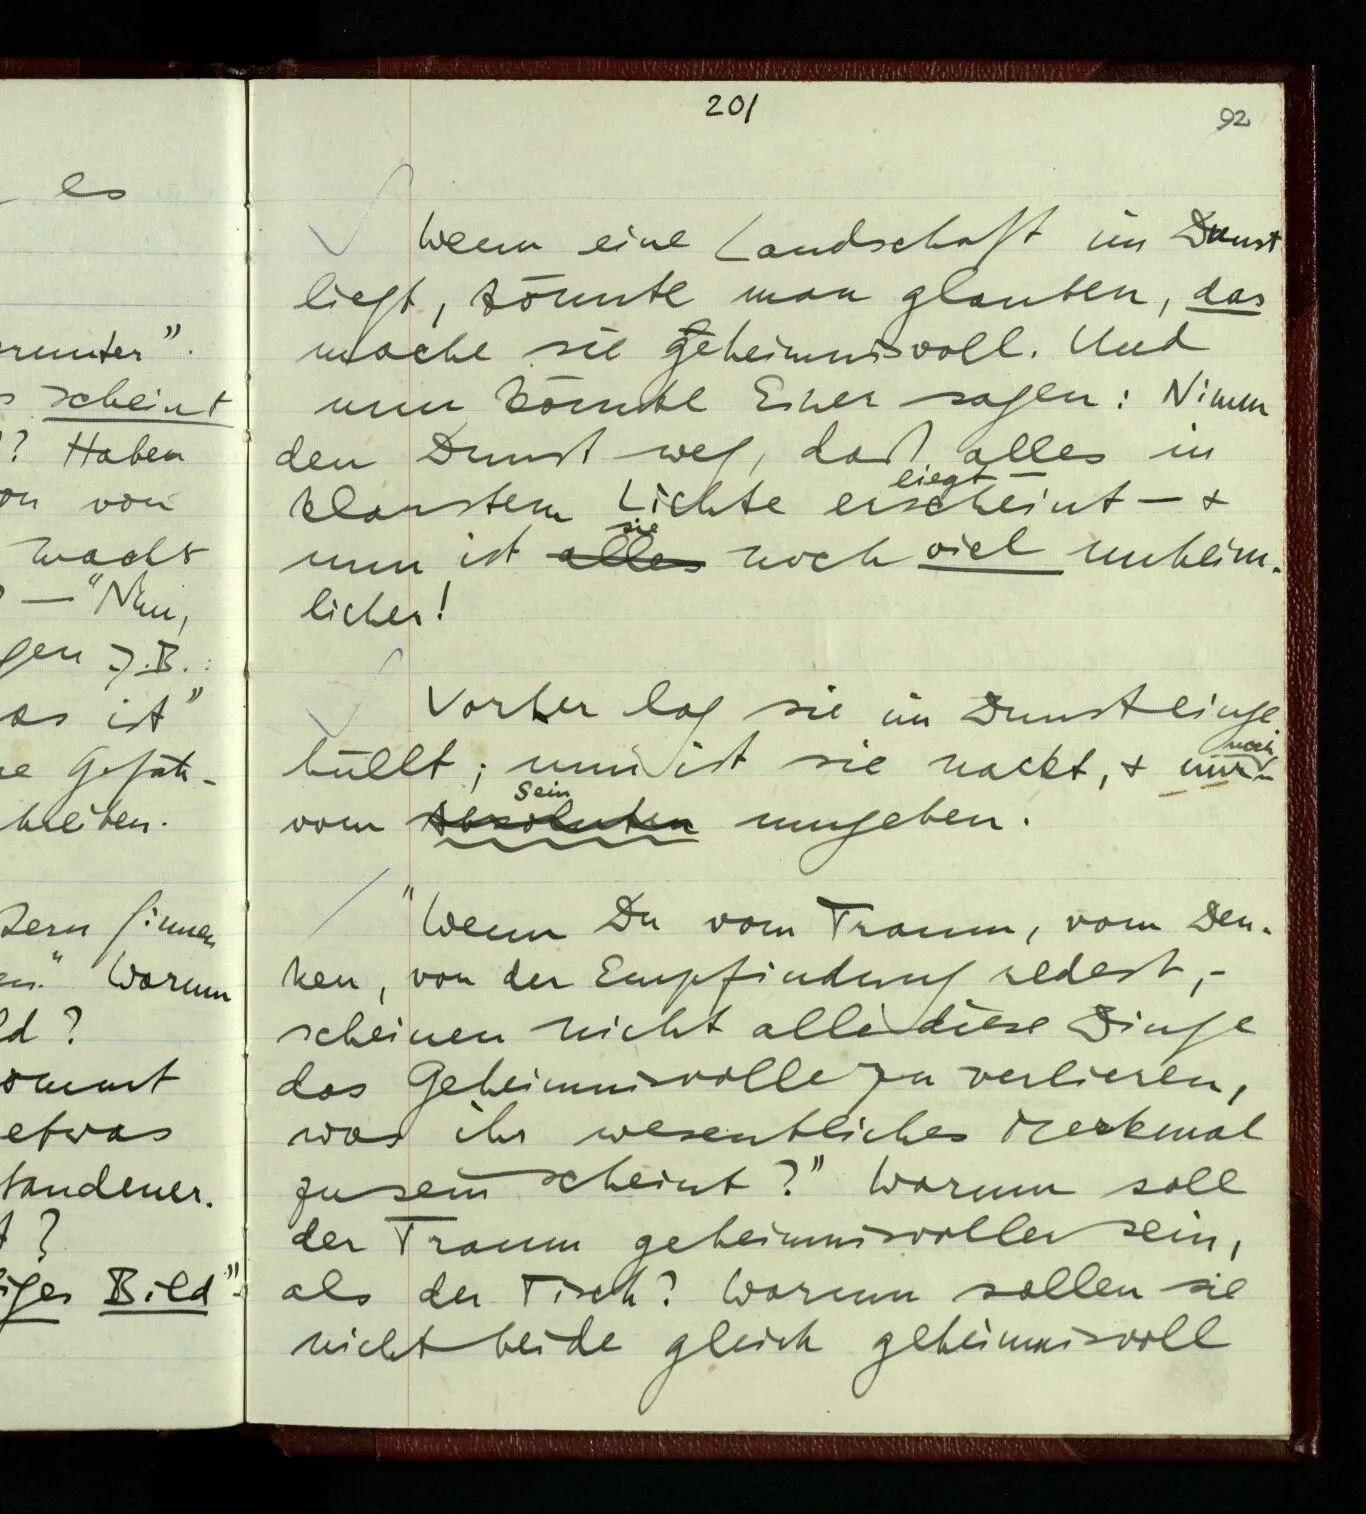 es
runter".
scheint
? Haben
von
macht
— "Nun,
gen z.B.:
as ist"
Gefüh-
schreiben.
"Warum
ld?
kommt
etwas
standener.
?
iges Bild"
201
92
Wenn eine Landschaft im Dunst
liegt, könnte man glauben, das
mache sie geheimnisvoll. Und
nun könnte Einer sagen: Nimm
den Dunst weg, daß alles in
liegt
klarstem Lichte erscheint – +
sie
nun ist alles noch viel unheim-
licher!
Vorher lag sie im Dunst einge
hüllt; nun ist sie nackt, + nur
noch
Sein
vom Absoluten umgeben.
"Wenn Du vom Traum, vom Den-
ken, von der Empfindung redest, –
scheinen nicht alle diese Dinge
das Geheimnisvolle zu verlieren,
was ihr wesentliches Merkmal
zu sein scheint?" Warum soll
der Traum geheimnisvoller sein,
als der Tisch? Warum sollen sie
nicht beide gleich geheimnisvoll